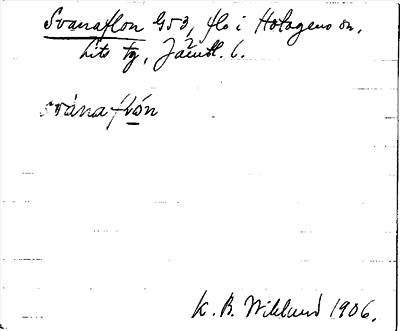 Svanaflon G53, flo i Hotagens sn,
Lits tg, Jämtl. l.
svánaflón
K. B. Wiklund 1906.